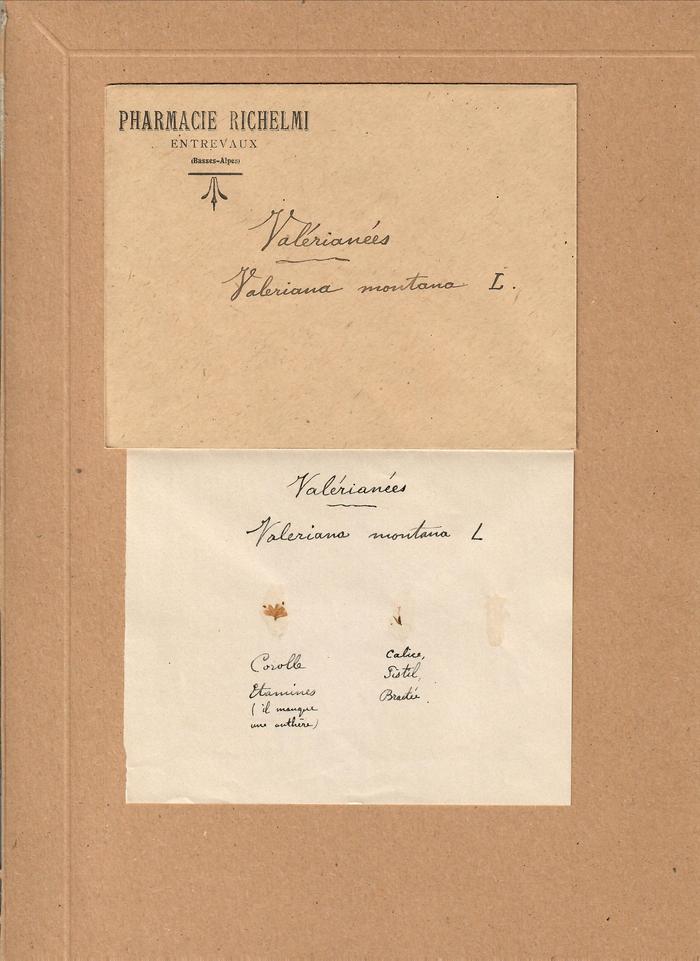 PHARMACIE RICHELMI
ENTREVAUX
(Basses-Alpes)
Valérianées
Valeriana montana L.
Valérianées
Valeriana montana L
Corolle
Etamines
(il manque
une anthère)
Calice,
Pistil,
Bractée.